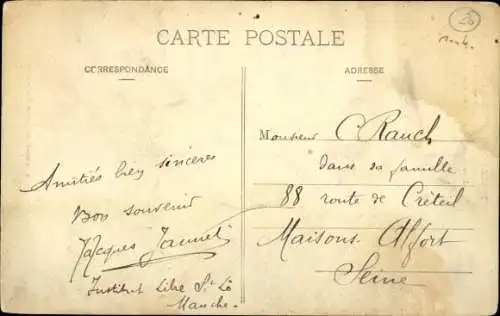 CARTE POSTALE
CORRESPONDANCE
ADRESSE
20
Monsieur C Rauch
dans sa famille
88 route de Créteil
Maisons-Alfort
Seine
Amitiés bien sincères
Bon souvenir
Jacques
Institut Libre St Lô
Manche